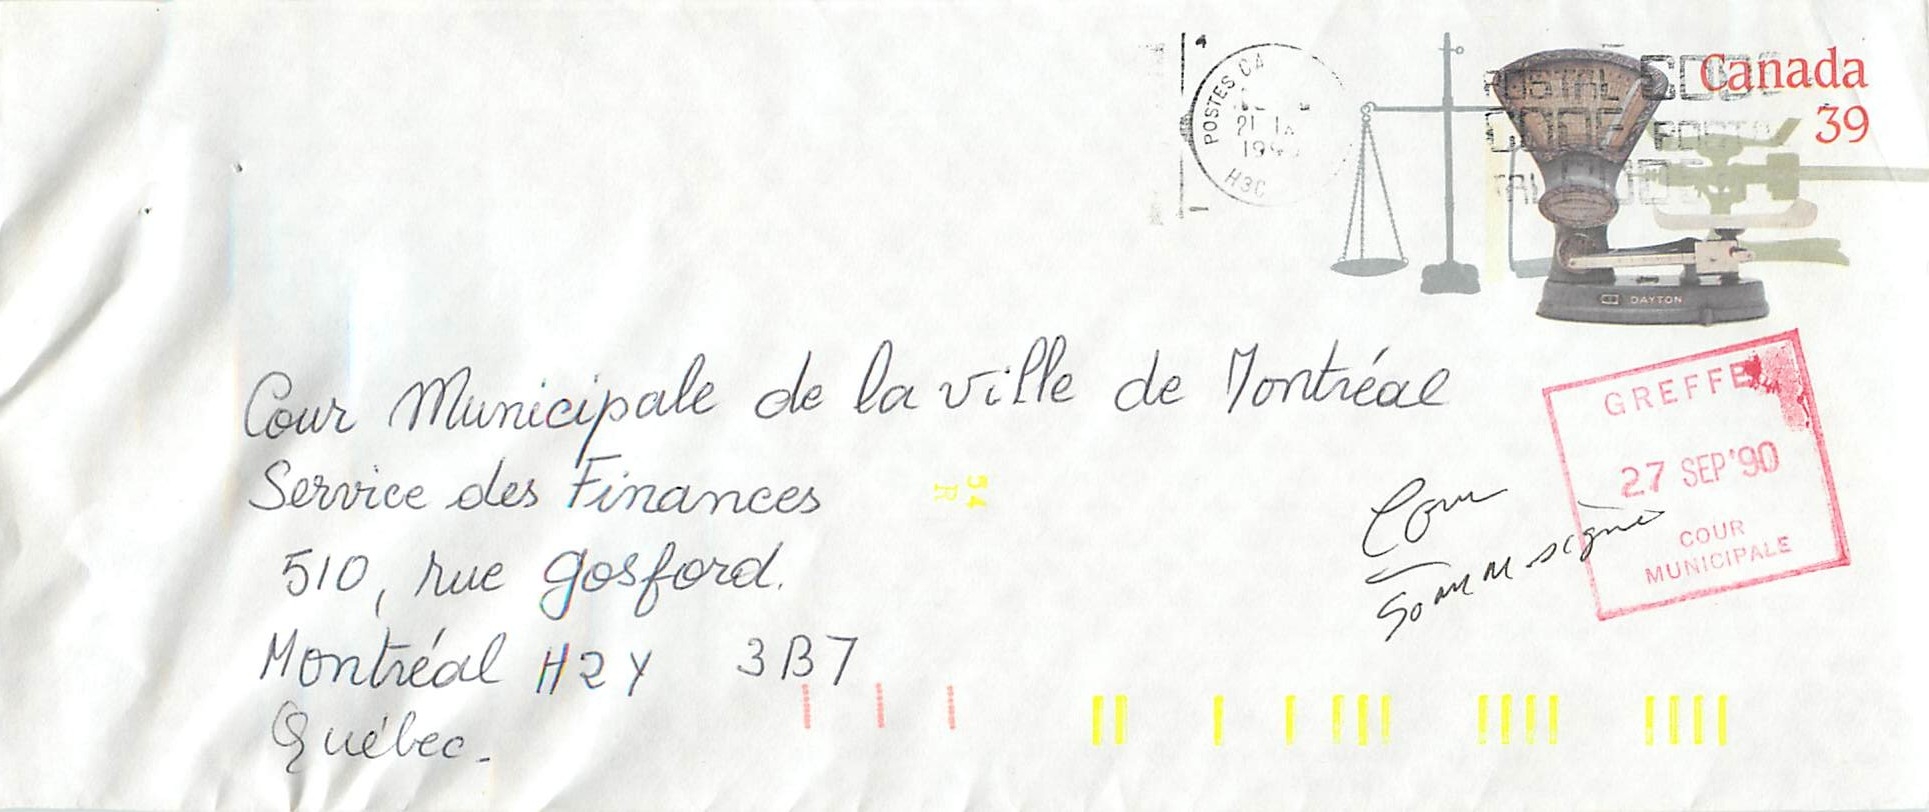 Canada
39
POSTES CA
21
H3C
POSTAL CODE
CODE POSTAL
DAYTON
Cour Municipale de la ville de Montréal
Service des Finances
510, rue Gosford.
Montréal H2Y 3B7
Québec.
GREFFE
27 SEP '90
COUR
MUNICIPALE
Cour
54
R